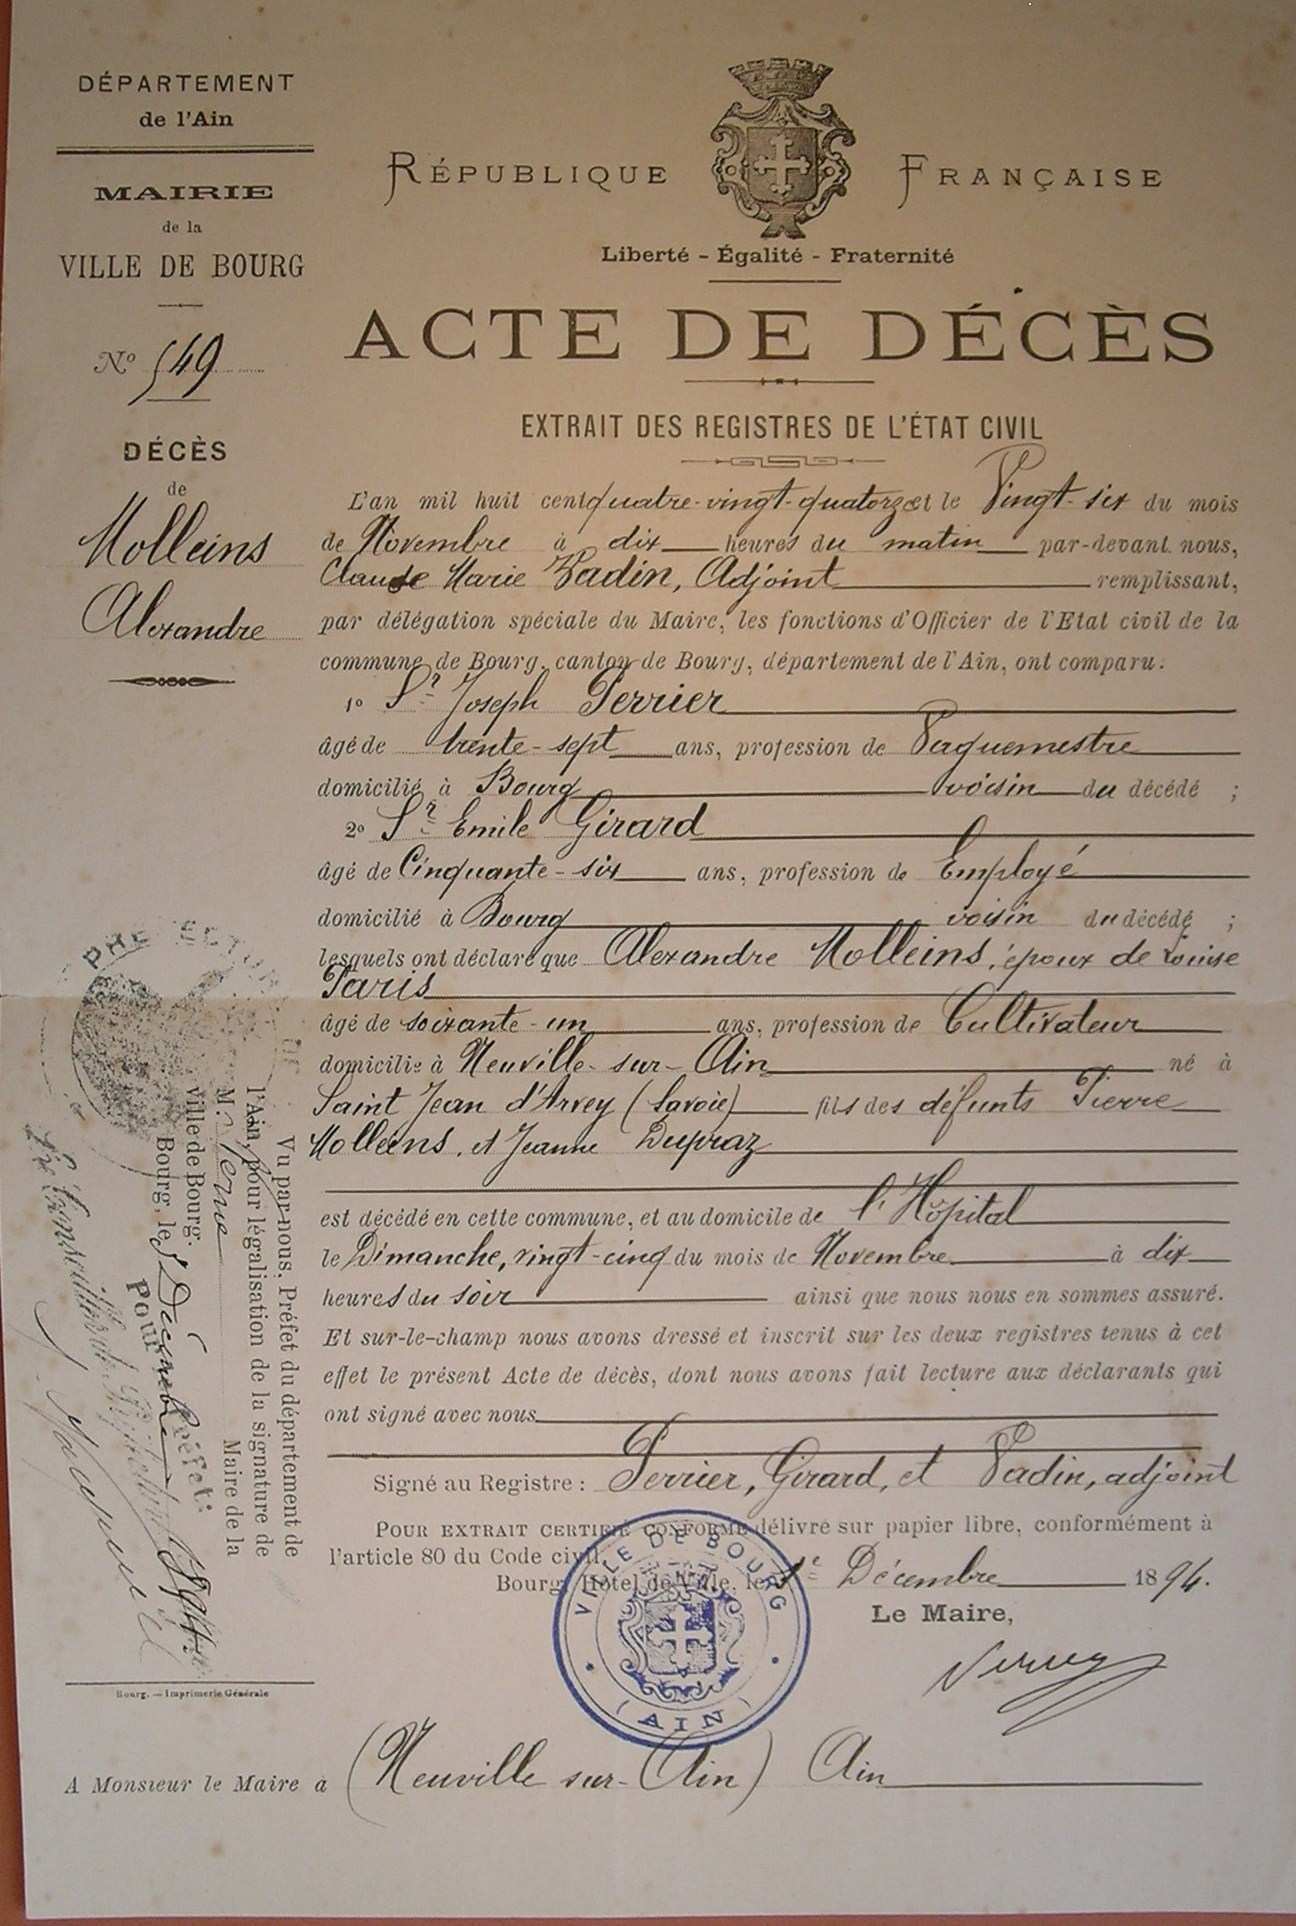 DÉPARTEMENT
de l'Ain
MAIRIE
de la
VILLE DE BOURG
No 549
DÉCÈS
de
Molleins
Alexandre
RÉPUBLIQUE FRANÇAISE
Liberté - Égalité - Fraternité
ACTE DE DÉCÈS
EXTRAIT DES REGISTRES DE L'ÉTAT CIVIL
L'an mil huit cent quatre-vingt-quatorze et le Vingt-six du mois
de Novembre à dix heures du matin par-devant nous,
Claude Marie Vadin, Adjoint remplissant,
par délégation spéciale du Maire, les fonctions d'Officier de l'Etat civil de la
commune de Bourg, canton de Bourg, département de l'Ain, ont comparu:
1o Sr Joseph Perrier
âgé de trente-sept ans, profession de Vaguemestre
domicilié à Bourg voisin du décédé ;
2o Sr Emile Girard
âgé de Cinquante-six ans, profession de Employé
domicilié à Bourg voisin du décédé ;
lesquels ont déclaré que Alexandre Molleins, époux de Louise
Paris
âgé de soixante-un ans, profession de Cultivateur
domicilié à Neuville-sur-Ain né à
Saint Jean d'Arvey (Savoie) fils des défunts Pierre
Molleins, et Jeanne Dupraz
est décédé en cette commune, et au domicile de l'Hôpital
le Dimanche, vingt-cinq du mois de Novembre à dix
heures du soir ainsi que nous nous en sommes assuré.
Et sur-le-champ nous avons dressé et inscrit sur les deux registres tenus à cet
effet le présent Acte de décès, dont nous avons fait lecture aux déclarants qui
ont signé avec nous
Signé au Registre : Perrier, Girard, et Vadin, adjoint
POUR EXTRAIT CERTIFIÉ CONFORME délivré sur papier libre, conformément à
l'article 80 du Code civil.
Bourg, Hôtel de Ville, le 1e Décembre 1894.
Le Maire,
VILLE DE BOURG
(AIN)
PREFECTURE DE
Vu par nous, Préfet du département de
l'Ain, pour légalisation de la signature de
M. Verne Maire de la
ville de Bourg.
Bourg, le Décembre
Pour Préfet:
Bourg. — Imprimerie Générale
A Monsieur le Maire à (Neuville sur-Ain) Ain